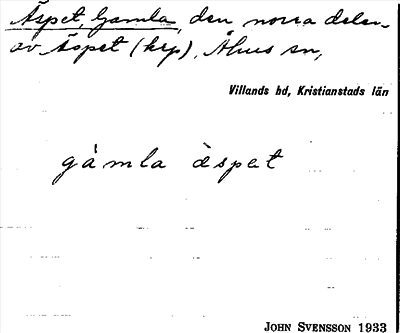 Äspet, Gamla, den norra delen
av Äspet (krp), Åhus sn,
Villands hd, Kristianstads län
gàmla äspet
JOHN SVENSSON 1933